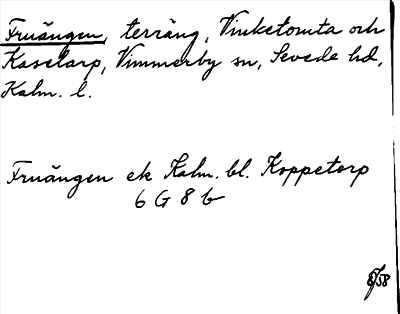 Fruängen, terräng, Vinketomta och
Kaselarp, Vimmerby sn, Sevede hd,
Kalm. l.
Fruängen ek Kalm. bl. Koppetorp
6 G 8 b